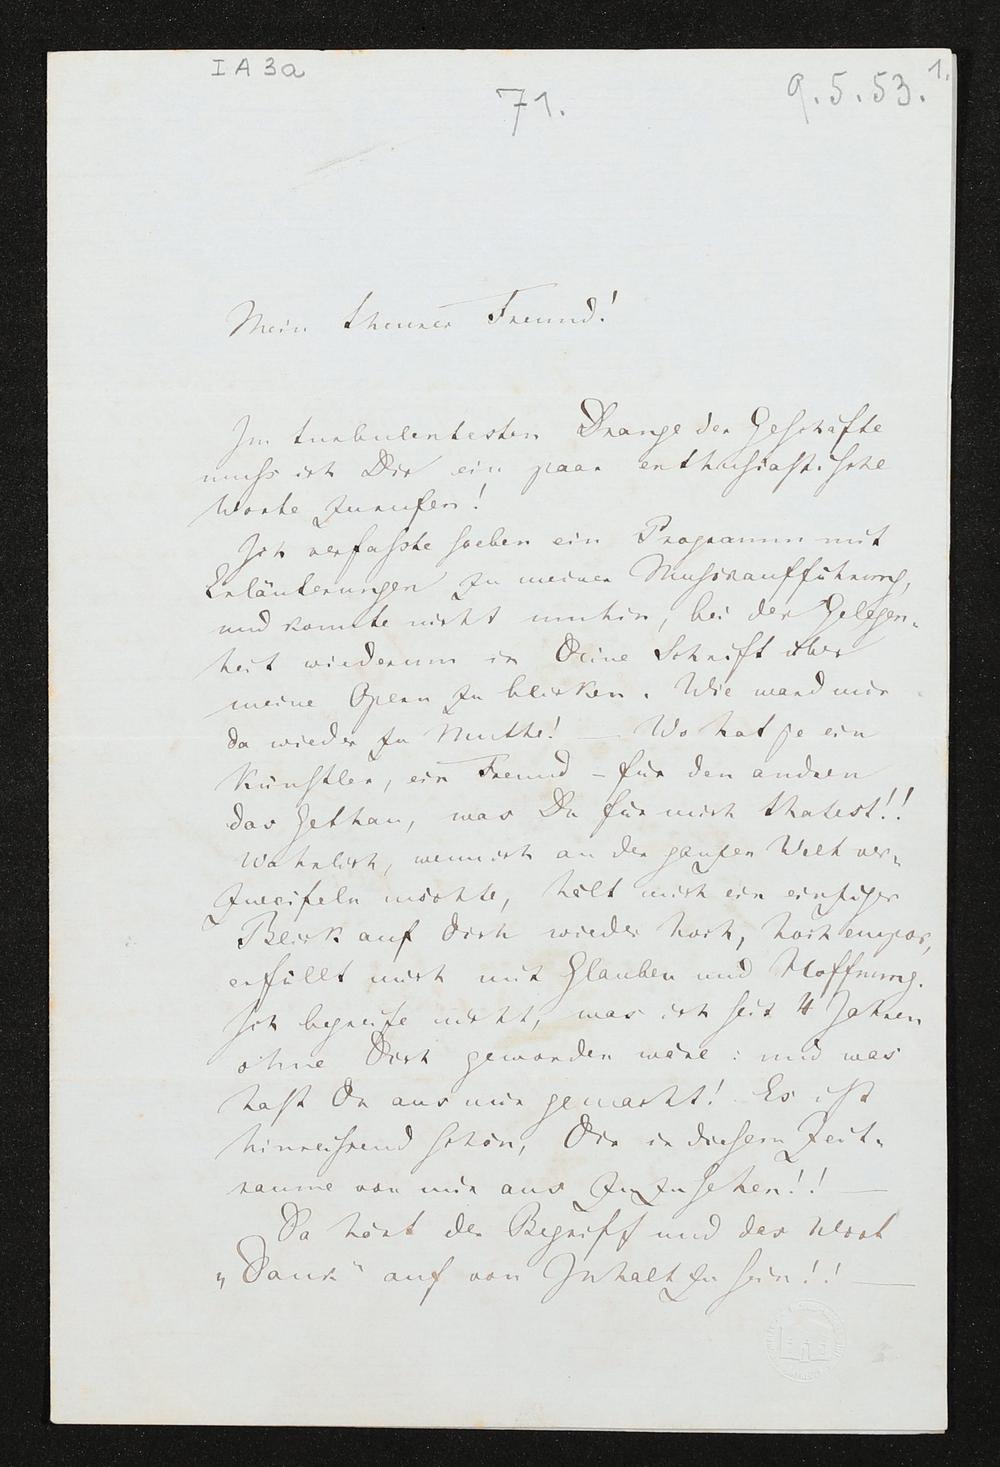 I A 3a
71.
9.5.53.
1.
Mein theurer Freund!
Im turbulentesten Drange der Geschäfte
muss ich Dir ein paar enthusiastische
Worte zurufen!
Ich verfasste soeben ein Programm mit
Erläuterungen zu meiner Musikaufführung,
und konnte nicht umhin, bei der Gelegen-
heit wiederum in Deine Schrift über
meine Opern zu blicken. Wie ward mir
da wieder zu Muthe! — Wo hat je ein
Künstler, ein Freund – für den andren
das gethan, was Du für mich thatest!!
Wahrlich, wenn ich an der ganzen Welt ver-
zweifeln möchte, hält mich ein einziger
Blick auf Dich wieder hoch, hoch empor,
erfüllt mich mit Glauben und Hoffnung.
Ich begreife nicht, was ich seit 4 Jahren
ohne Dich geworden wäre: und was
hast Du aus mir gemacht! Es ist
hinreissend schön, Dir in diesem Zeit-
raume von mir aus zuzusehen!! —
Da hört der Begriff und das Wort
„Dank“ auf von Inhalt zu sein!! —